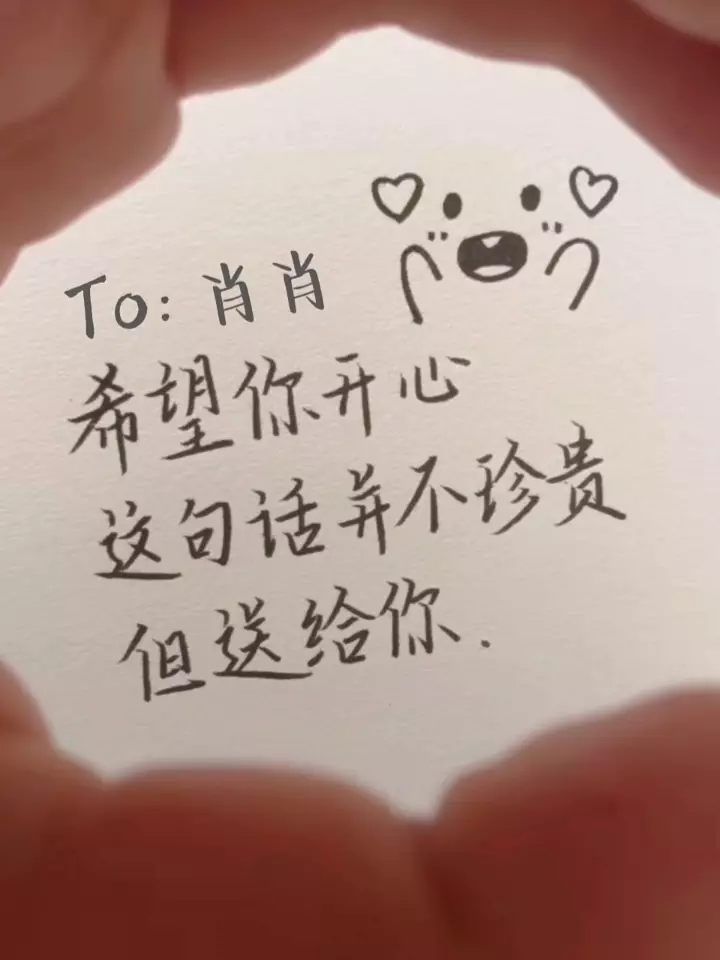 To: 肖肖
希望你开心
这句话并不珍贵
但送给你.